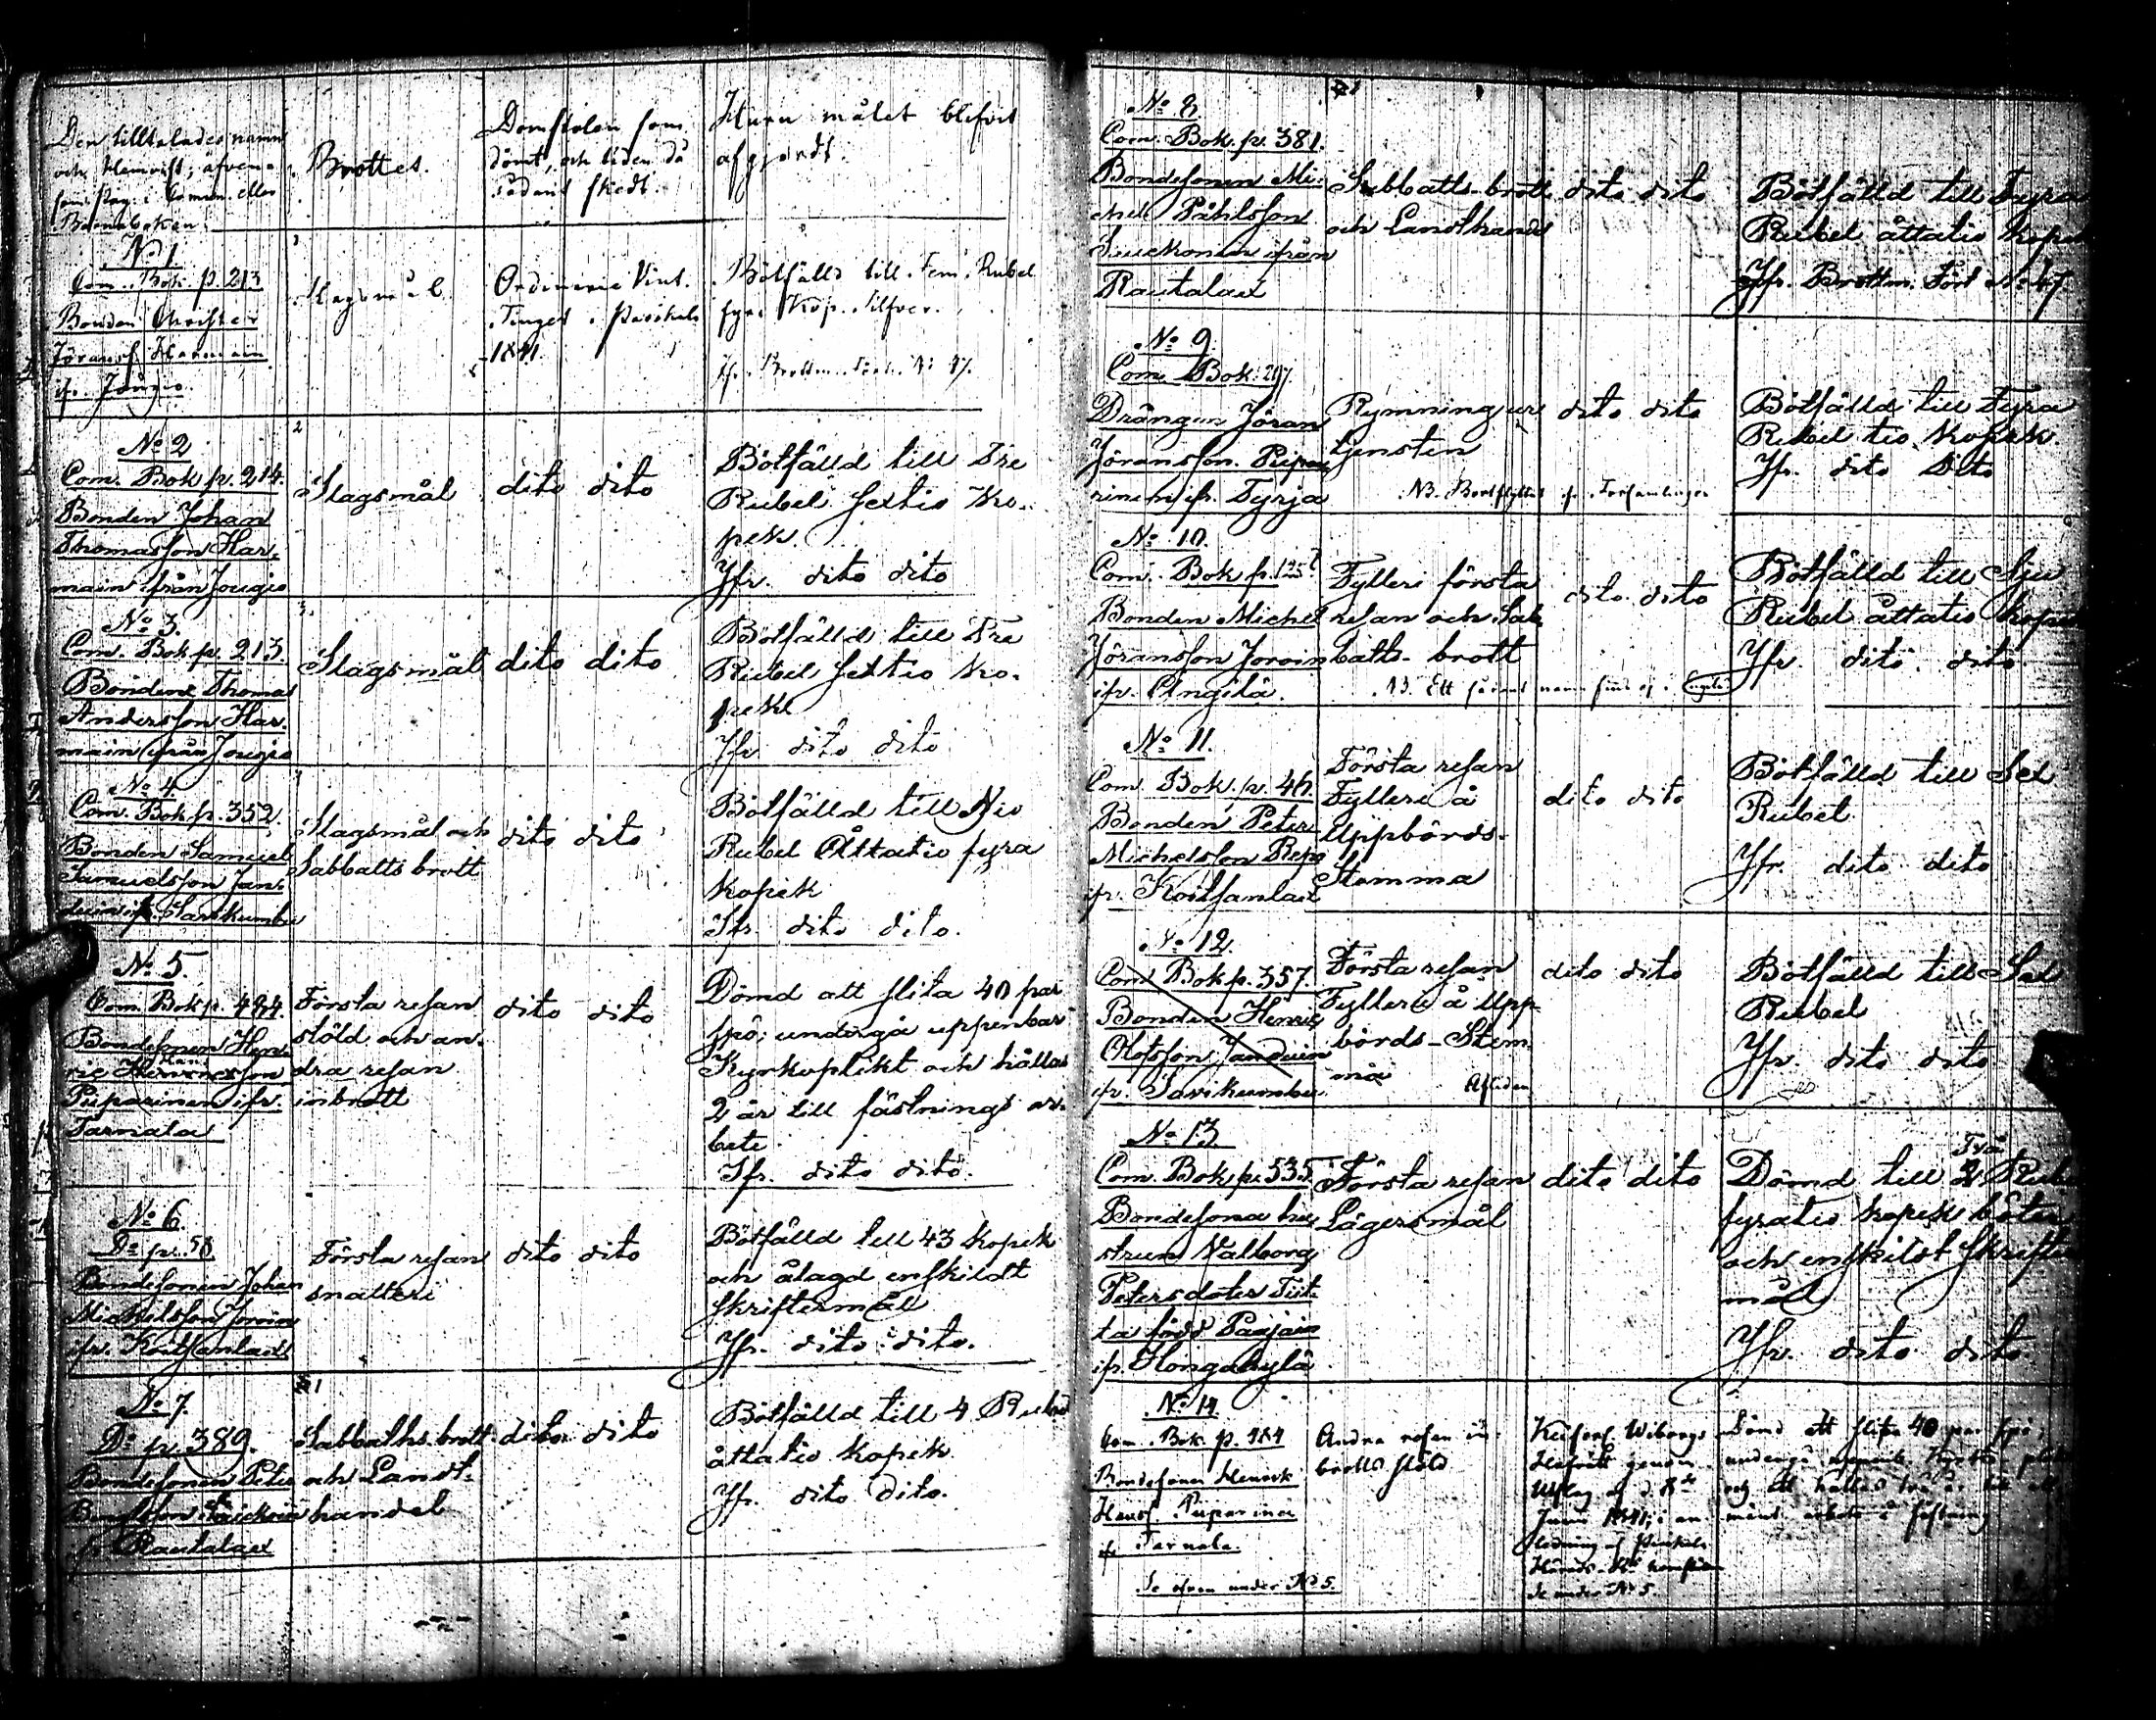 Den tilltalades namn
och hemvist, äfven-
som pag. i Commun. eller
Barnaboken.
Brottet.
Domstolen som
dömt, och tiden då
sådant skedt.
Huru målet blifvit
afgjordt.
No 1
Com. Bok p. 213
Bonden Christer
Jöransf. Harmain
ifr. Jougio.
Slagsmål.
Ordinarie Vint.
Tinget i Pärikala
1841.
Bötfälld till Fem Rubel
fyra Kop. Silfver.
Jfr. Brottm. Fört. No 47.
No 2
Com. Bok p. 214.
Bonden Johan
Thomasson Har-
main ifrån Jougio
2
Slagsmål
dito dito
Bötfälld till Tre
Rubel sextio Ko-
pek.
Jfr. dito dito
No 3.
Com. Bok p. 213.
Bonden Thomas
Andersson Har-
main ifrån Jougio
3.
Slagsmål
dito dito
Bötfälld till Tre
Rubel sextio Ko-
pek
Jfr. dito dito
No 4.
Com. Bok p. 352.
Bonden Samuel
Samuelsson Jan-
duin ifr. Savikumbu
Slagsmål och
Sabbatts brott
dito dito
Bötfälld till Nio
Rubel Åttatio fyra
Kopek
Jfr. dito dito.
No 5.
Com. Bok p. 484.
Bondesonen Hen-
ric
Puparinen ifr.
Tarnala
Första resan
stöld och an-
dra resan
inbrott
dito dito
Dömd att slita 40 par
spö; undergå uppenbar
Kyrkoplikt och hållas
2 år till fästnings ar-
bete
Jfr. dito dito.
No 6.
Do p. 58
Bondesonen Johan
Michelsson Joroin
ifr. Koitsanlaks
Första resan
snatteri
dito dito
Bötfälld till 43 Kopek
och ålagd enskildt
Skriftermål
Jfr. dito dito.
No 7.
Do p. 389.
Bondesonen Peter
Suckoin
ifr. Rautalax
1
Sabbaths brott
och Landt-
handel
dito dito
Bötfälld till 4 Rubel
åttatio kopek.
Jfr. dito dito.
No 8.
Com. Bok. p. 381.
Bondesonen Mi-
chel Påhlsson
Suckonen ifrån
Rautalax
Sabbatts-brott
och Landthandel
dito dito
Bötfälld till Fyra
Rubel åttatio kopek
Jfr. Brottm. Fört No 47
No 9.
Com. Bok. 297.
Drängen Jöran
Jöransson Pupa-
rinen ifr. Tyrja
Rymning ur
tjensten
NB. Bortflyttat ifr. Församlingen
dito dito
Bötfälld till Fyra
Rubel tio Kopek.
Jfr. dito dito
No 10.
Com. Bok p. 125?
Bonden Michel
Jöransson Joroin
ifr. Angilä.
Fylleri första
resan och Sab-
batts-brott
NB. Ett sådant namn finns ej i Engilä
dito dito
Bötfälld till Sju
Rubel åttatio Kopek
Jfr. dito dito
No 11.
Com. Bok. p. 46.
Bonden Peter
Michelsson Repo
ifr. Koitsanlax
Första resan
Fylleri å
Uppbörds-
Stemma
dito dito
Bötfälld till Sex
Rubel.
Jfr. dito dito
No 12.
Com. Bok p. 357.
Bonden Henric
Olofsson Janduin
ifr. Savikumbu
Första resan
Fylleri å Upp-
börds-Stem-
ma
Afliden
dito dito
Bötfälld till Sex
Rubel
Jfr. dito dito
No 13.
Com. Bok p. 535.
Bondesona hu-
strun Valborg
Petersdoter Tiit-
ta född Paajain
ifr. Hongakylä
Första resan
Lägersmål
dito dito
Två
Dömd till 2 Rubel
fyratio kopek böter
och enskildt Skrifter-
mål
Jfr. dito dito
No 14.
Com. Bok p. 484
Bondesonen Henrik
Hensf. Puparinen
ifr. Tarnala.
Se ofvan under No 5.
Andra resan in-
brotts stöld
Keiserl. Wiborgs
Hofrätt genom
Utslag af d. 8de
Juni 1841, i an-
ledning af Pärikala
Härads Rts
Se under No 5.
Dömd att slita 40 par spö;
undergå uppenb. Kyrko plikt
och att hållas två år till all-
mänt arbete å fästning